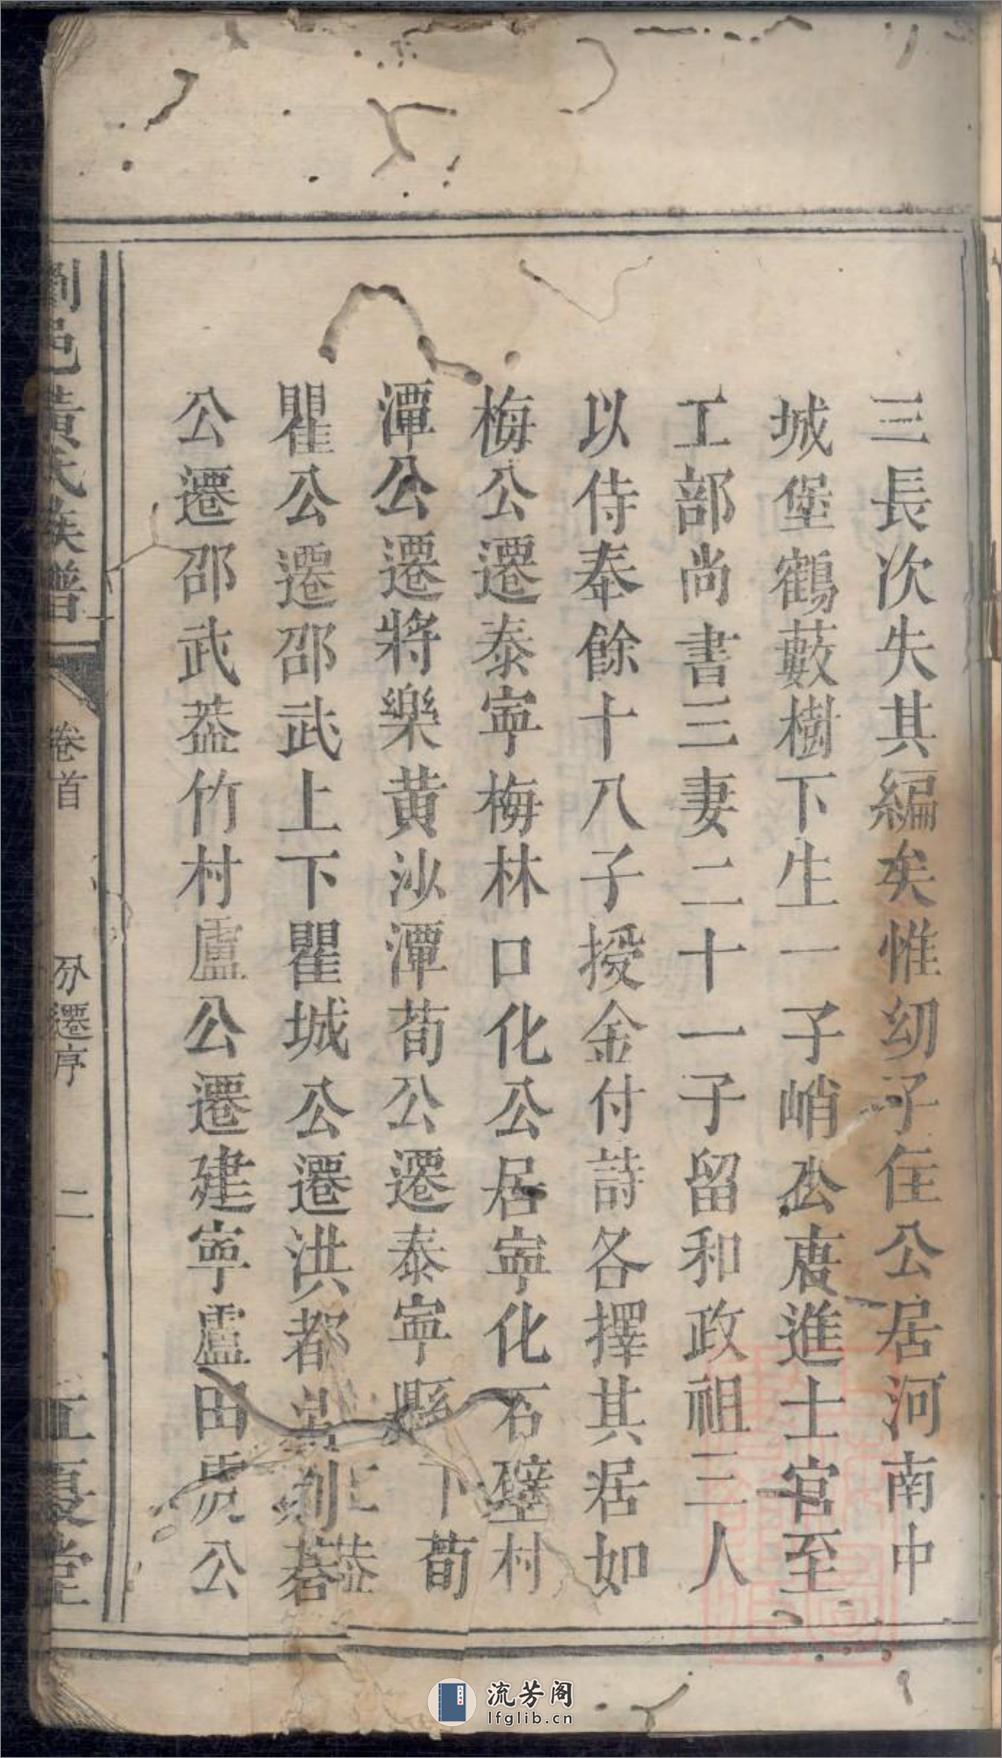 三長次失其編矣惟幼子住公居河南中
城堡鶴藪樹下生一子峭公衷進士官至
工部尚書三妻二十一子留和政祖三人
以侍奉餘十八子授金付詩各擇其居如
梅公遷泰寧梅林口化公居寧化石壁村
潭公遷將樂黄沙潭荀公遷泰寧縣下荀
瞿公遷邵武上下瞿城公遷洪都
公遷邵武葢竹村盧公遷建寧盧田虎公
劉邑黃氏族譜
卷首
分遷序
二
流芳阁
lfglib.cn